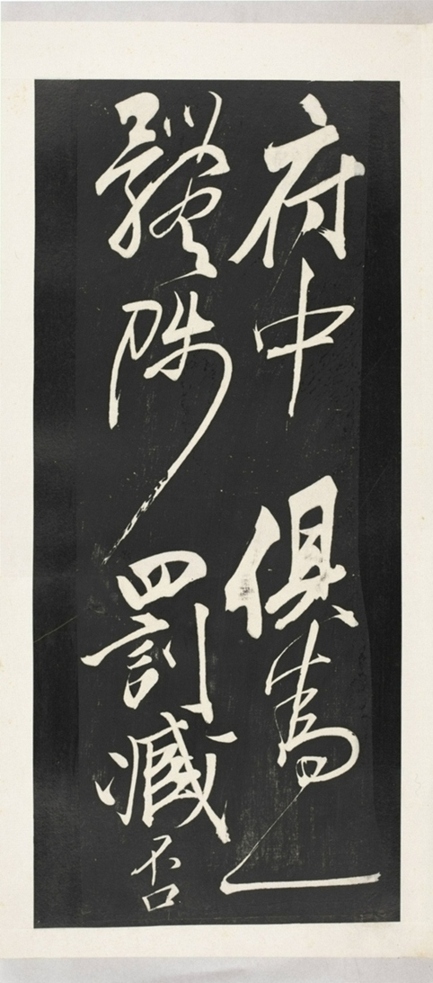 府中俱為一
體陟罰臧否